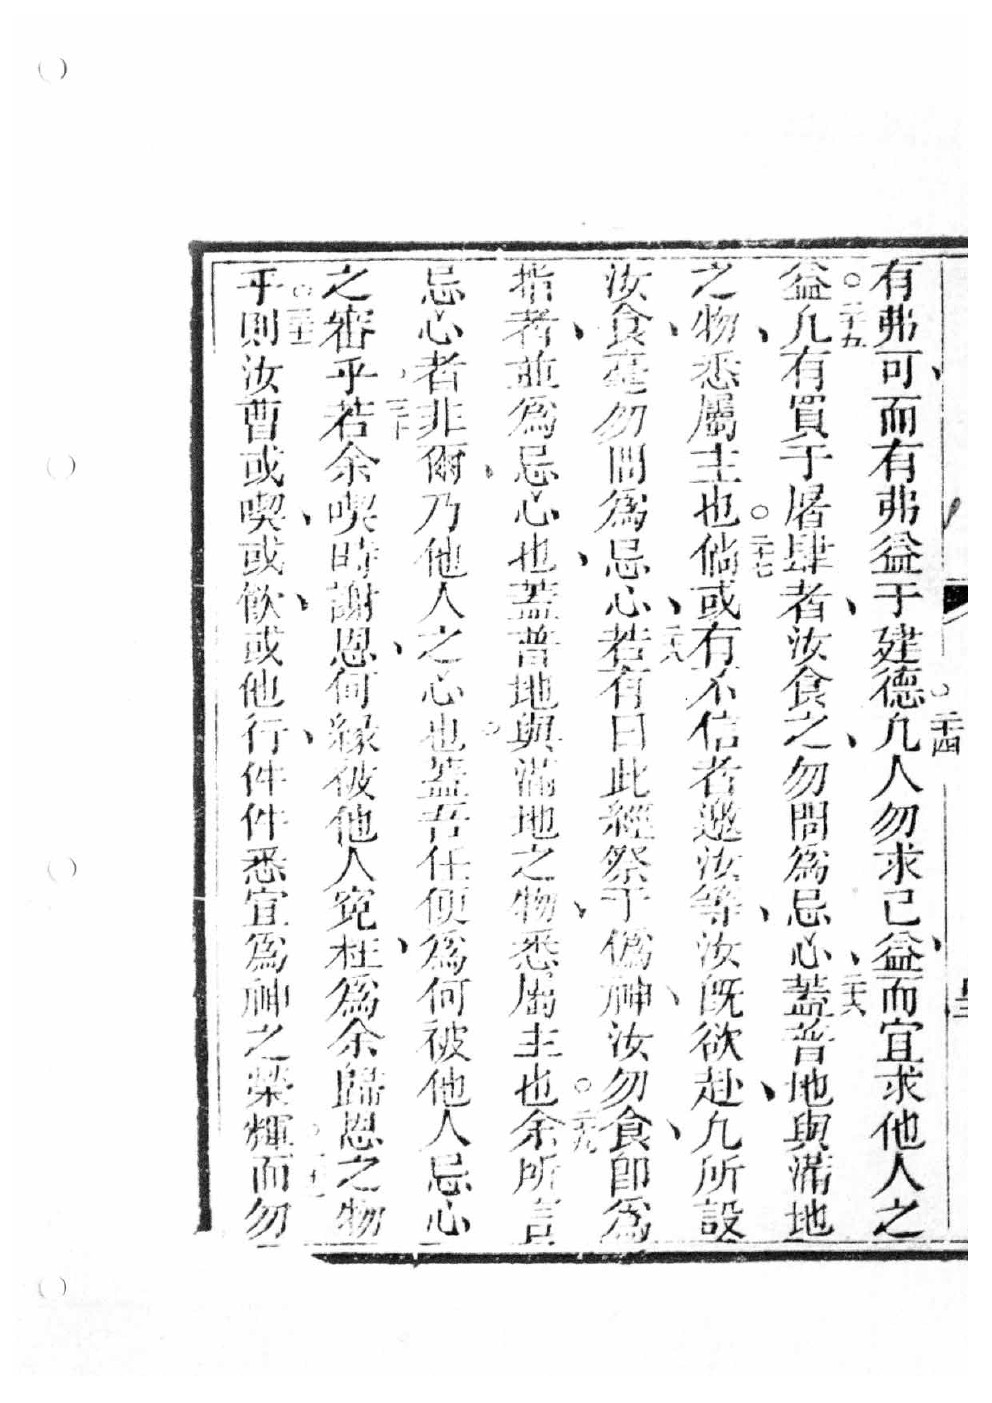 有弗可而有弗益于建德凡人勿求己益而宜求他人之
益凡有買于屠肆者汝食之勿問為忌心蓋普地與滿地
之物悉屬主也倘或有不信者邀汝等汝既欲赴凡所設
汝食毫勿問為忌心若有曰此經祭于偽神汝勿食即為
指者並為忌心也蓋普地與滿地之物悉屬主也余所言
忌心者非爾乃他人之心也蓋吾任便為何被他人忌心
之審乎若余喫時謝恩何緣彼他人寃枉為余歸恩之物
乎則汝曹或喫或飲或他行件件悉宜為神之榮輝而勿